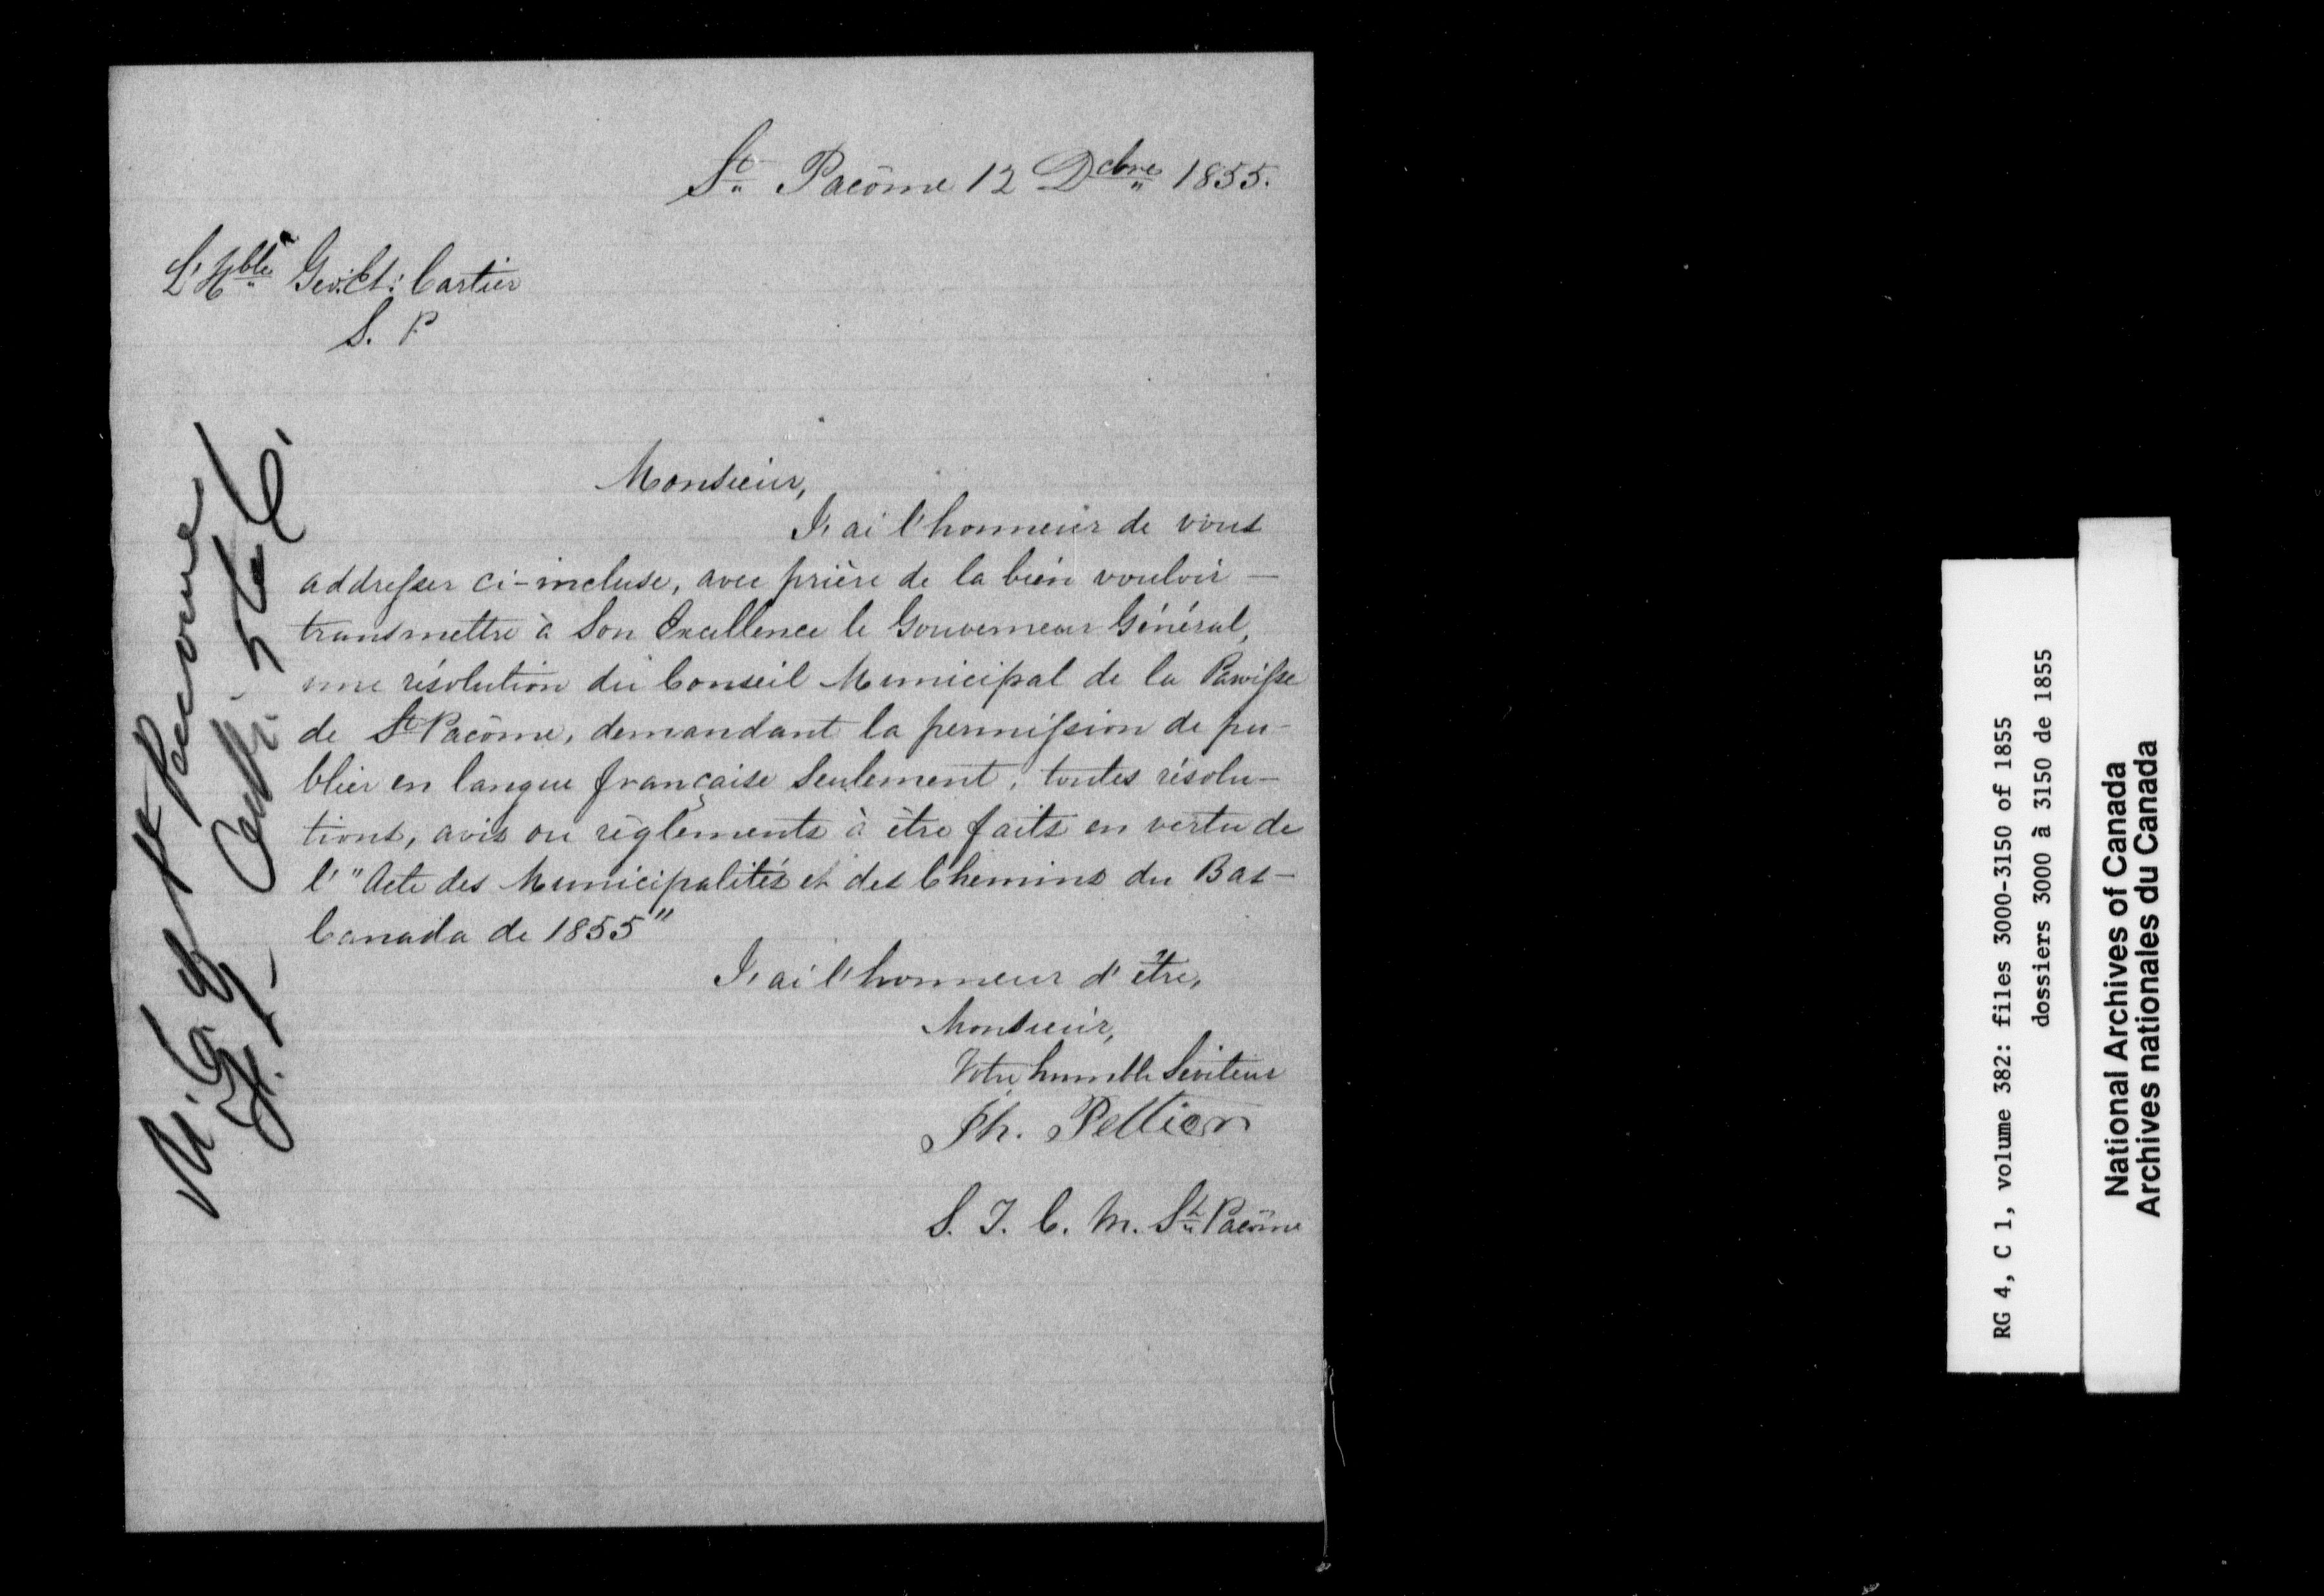 St Pacôme 12 Dcbre 1855.
L'Hble Geo: Et: Cartier
S. P
Monsieur,
J'ai l'honneur de vous
addresser ci-incluse, avec prière de la bien vouloir —
transmettre à Son Excellence le Gouverneur Général,
une résolution du Conseil Municipal de la Paroisse
de St Pacôme, demandant la permission de pu-
blier en langue française seulement, toutes résolu-
tions, avis ou règlements à être faits en vertu de
l'"Acte des Municipalités et des Chemins du Bas-
Canada de 1855"
J'ai l'honneur d'être,
Monsieur,
Votre humble Serviteur
Ph. Pelletier
S. T. C. M. St Pacôme
M. C. of St Pacome
RG 4, C 1, volume 382: files 3000-3150 of 1855
dossiers 3000 à 3150 de 1855
National Archives of Canada
Archives nationales du Canada